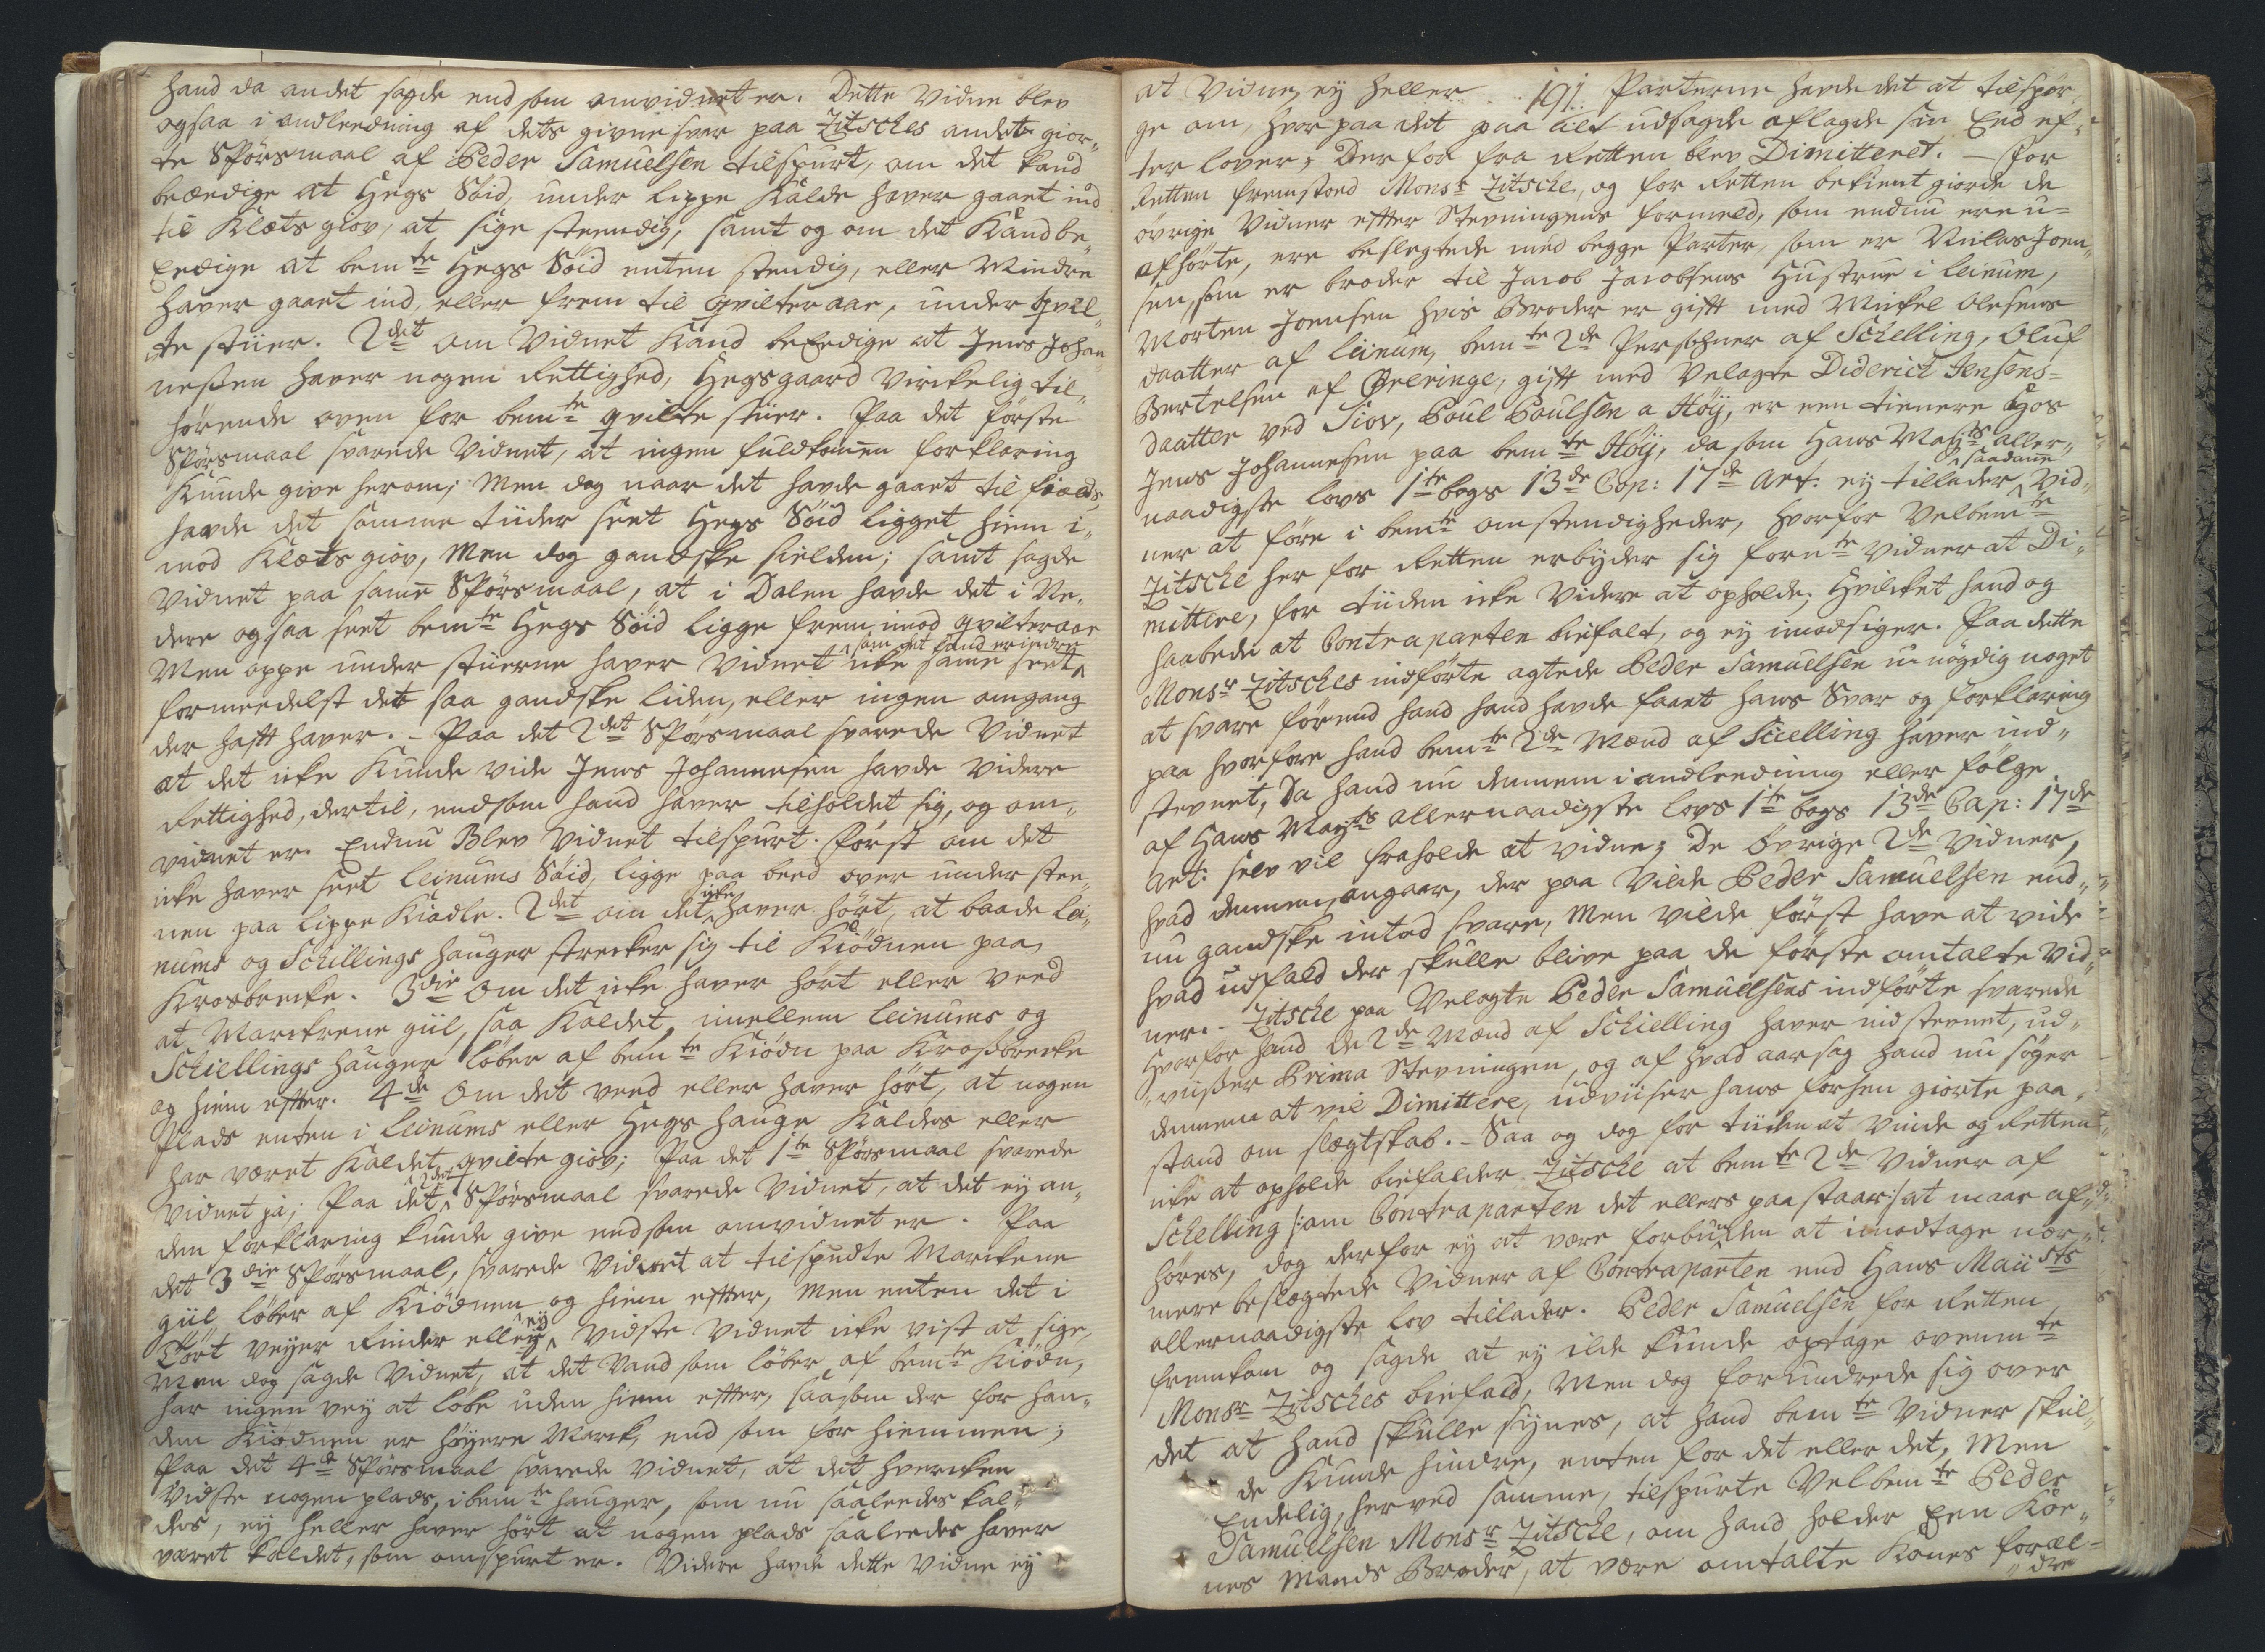 hand da andet sagde end som omvidnet er. Dette Vidne blev
ogsaa i andleedning af dets givne svar paa Zitsches andet gior„
te Spörsmaal af Peder Samuelsen tilspurt, om det kand
beædige at Hegs Söid, under lippe Kalde haver gaaet ind
til Klæts giov, at sige stendig, samt og om det Kand be„
Eedige at bemte Hegs Söid enten stendig, eller Mindre
haver gaaet ind, eller frem til qvilteraae, under qvil„
te stüer. 2det om Vidnet Kand beEedige at Jens Johan
nessen haver nogen Rettighed, Hegsgaard Virkelig til„
hørende oven for bemte qvilte stüer. Paa det förste
Spörsmaal svarede Vidnet, at ingen fuldkomen forklaring
Kunde give herom; Men dog naar det havde gaaet til fields
havde det somme tiider seet Hegs Söid ligget hiem i„
mod Klæts giov, Men dog gandske sielden; samt sagde
Vidnet paa same Spörsmaal, at i Dalen havde det i Ne„
dere ogsaa seet bemte Hegs Söid ligge frem imod qvilteraae
Men oppe under stüerne haver Vidnet ike same seet som det kand erindre
formeedelst det saa gandske liden, eller ingen omgang
der haft haver. – Paa det 2det Spörsmaal svarede Vidnet
at det icke Kunde vide Jens Johannesen havde Videre
Rettighed, dertil, end som hand haver tilholdet sig, og om„
vidnet er. Endnu Blev Vidnet tilspurt. Först om det
icke haver seet Leinums Söid, ligge paa beed over under stee„
nen paa lippe Kiadle. 2det om det icke haver hört, at baade Lei„
nums og Schillings hauger strecker sig til Kiödnen paa
Krosbrecke. 3die Om det icke haver hört eller veed
at Marckrene giil, saa Kaldet, imellem Leinums og
Schiellings hauger löber af bemte Kiödn paa Krosbrecke
og hiem efter. 4de Om det veed eller haver hört, at nogen
Plads enten i Leinums eller Hegs hauge Kaldes eller
har været Kaldet qvilte giov; Paa det 1te Spörsmaal svarede
Vidnet ja; Paa det 2det Spörsmaal svarede Vidnet, at det ey an„
den forklaring kunde give end som omvidnet er. Paa
det 3die Spörsmaal, svarede Vidnet at tilspurte Marckene
giil löber af Kiödnen og hiem efter, men enten det i
Tört veyer Rinder eller ey Vidste Vidnet icke vist at sige,
Men dog sagde Vidnet, at det Vand som löber af bemte Kiödn,
har ingen vey at löbe uden hiem efter, saasom der for han„
den Kiödnen er höyere Marck, end som for hiemmen;
Paa det 4de Spörsmaal svarede Vidnet, at det hvercken
Vidste nogen plads, i bemte hauger, som nu saaleedes kal„
des, ey heller haver hört at nogen plads saaleedes haver
været kaldet, som omspurt er. Videre havde dette Vidne ey
at Vidne, ey heller 191. Parterne havde det at tilspör„
ge om, hvor paa det paa lilt udsagde aflagde sin Eed ef„
ter loven; Derfor fra Retten blev Dimitteret. – For
Retten fremstoed Monsr Zitsche, og for Retten bekient giorde de
övrige Vidner efter Stevningens formeld, som endnu ere u=
afhörte, ere beslegtede med begge Parter, som er Niclas Joen„
sen, som er broder til Jacob Jacobsens Hustrue i Leinum,
Morten Joensen hvis Broder er gift med Mickel Olesens
daatter af Leinum, bemte 2de Persohner af Schelling, Oluf
Bertelsen af Qvelringe, gift med Velagte Diderich Jensens=
daatter ved Siov, Poul Poulsen a Höÿ, er een tienere hos
Jens Johannesen paa bemte Höÿ, da som Hans Mayts aller„
naadigste lovs 1te bogs 13de Cap: 17de Art: ey tillader saadanne Vid„
ner at före i bemte omstendigheder, hvorfor Velbemte
Zitsche her for Retten erbyder sig fornte Vidner at Di„
mittere, for tiiden icke Videre at opholde; Hvilcket hand og
haabede at Contraparten biefalt, og ey imodsiger. Paa dette
Monsr Zitsches indförte agtede Peder Samuelsen unögdig noget
at svare förend hand hand havde faaet hans Svar og forklaring
paa hvorfore hand bemte 2de Mænd af Scielling haver ind„
stevnet, Da hand nu dennem i andleedning eller fölge
af Hans Mayts allernaadigste lovs 1te bogs 13de Cap: 17de
Art: selv vil fraholde at vidne; De övrige 2de Vidner,
hvad dennem angaar, der paa Vilde Peder Samuelsen end„
nu gandske intet svare, Men vilde först have at vide
hvad udfald der skulle blive paa de förste omtalte Vid„
ner. – Zitsche paa Velagte Peder Samuelsens indförte svarede
Hvorfor hand de 2de Mænd af Schielling haver indstevnet, ud„
„viisser Prima Stevningen, og af hvad aarsag hand nu söger
dennem at vil Dimittere, udviiser hans forhen giorte paa„
stand om slægtskab. – Saa og dog for tiiden at Vinde og Retten
icke at opholde biefalder Zitsche at bemte 2de Vidner af
Schelling /:om Contraparten det ellers paastaar:/ at maae af„
höres, dog derfor ey at være forbunden at imodtage nær„
mere beslægtede Vidner af Contraparten end Hans Maÿsts
allernaadigste lov tillader. Peder Samuelsen for Retten
fremkom og sagde at ey ilde kunde optage ovennte
Monsr Zitsches biefald, Men dog forundrede sig over
det at hand skulle synes, at hand bemte Vidner skul„
de Kunde hindre, enten for det eller det, Men
Endelig, herved samme, tilspurte Velbemte Peder
Samuelsen Monsr Zitsche, om hand holder Een Kóe„
nes Mands Broder, at være omtalte Kones foræl=
„dre